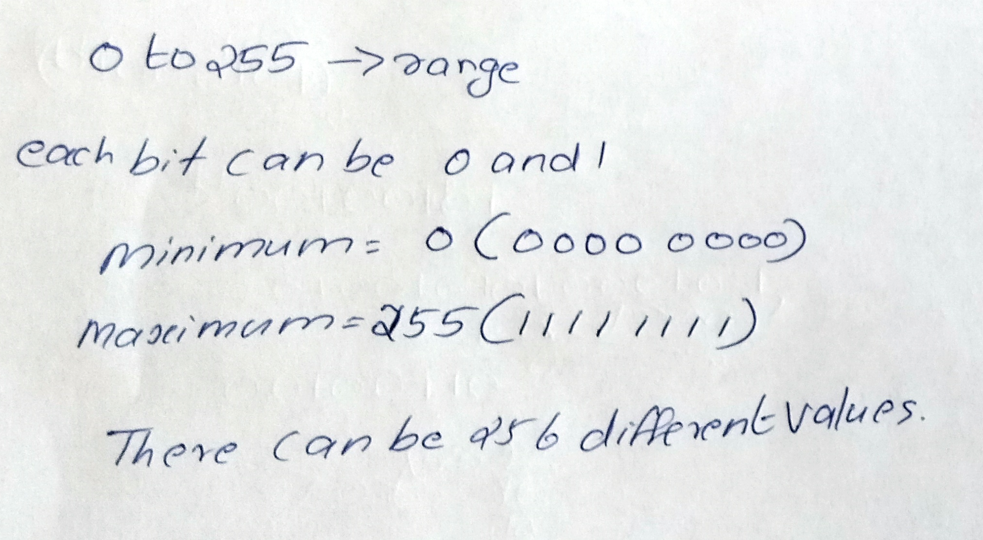 0 to 255 → range
each bit can be 0 and 1
minimum = 0 (0000 0000)
maximum = 255 (1111 1111)
There can be 256 different values.